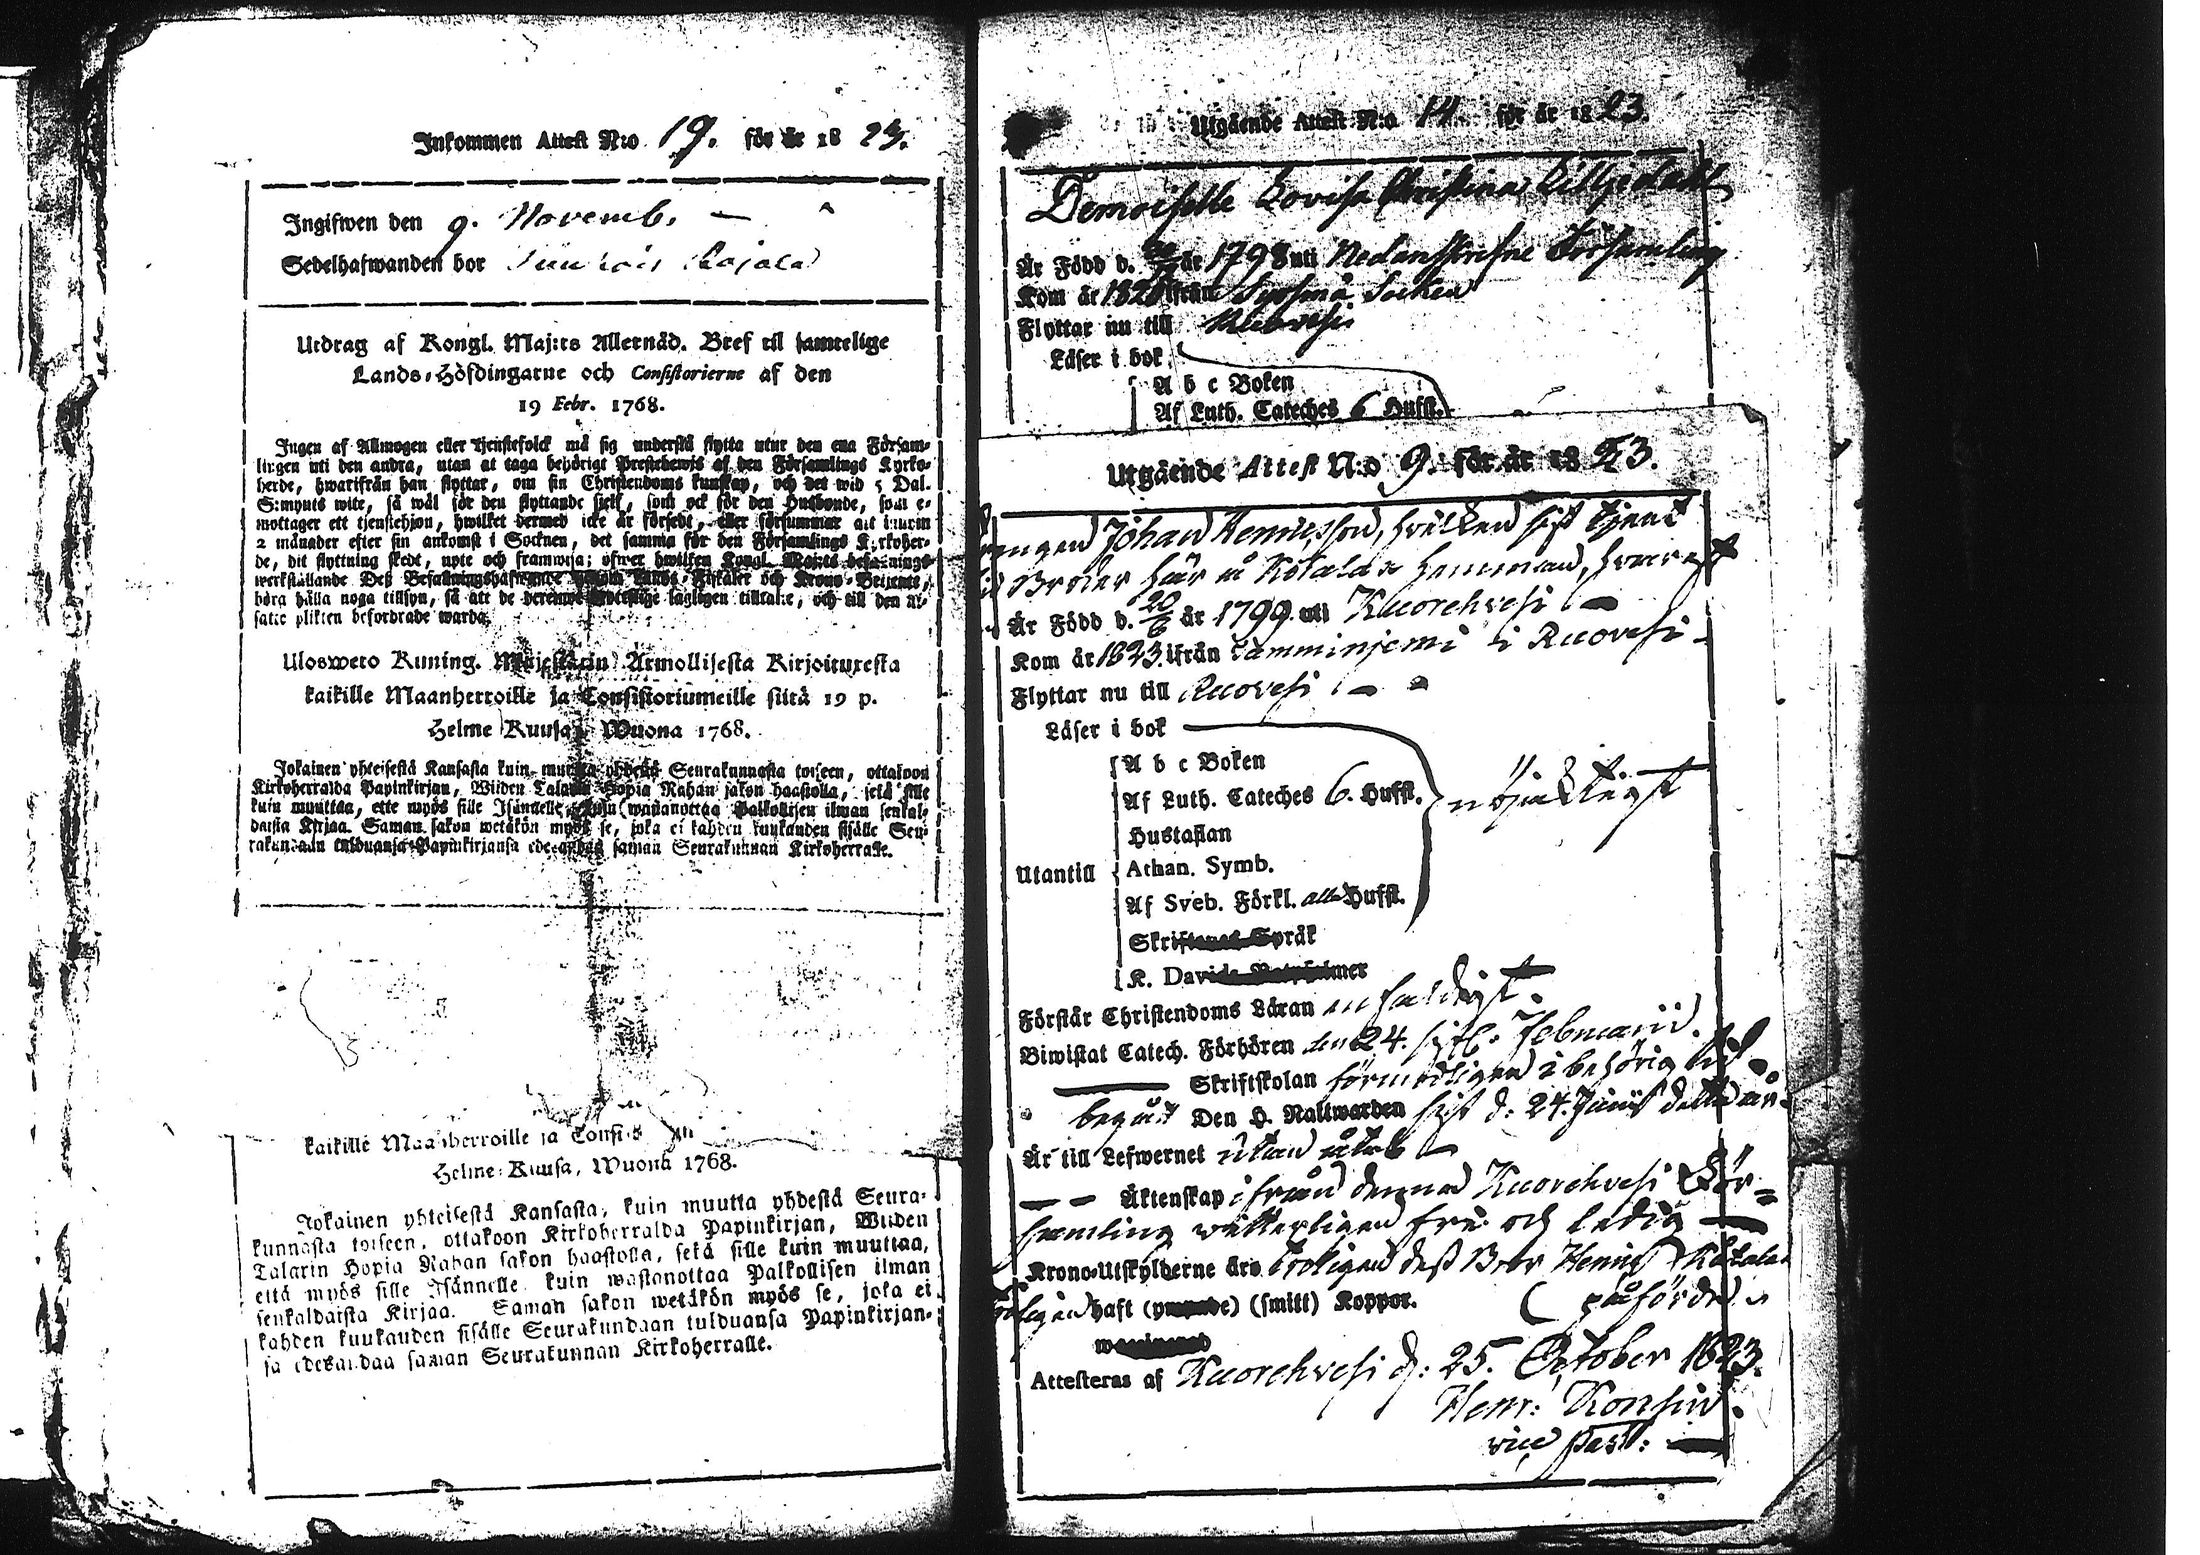 Inkommen Attest N:o 19. för år 18 23.
Ingifwen den 9. Novemb.
Sedelhafwanden bor
Utdrag af Kongl. Maj:ts Allernåd. Bref til samtelige
Lands-Höfdingarne och Consistorierne af den
19 Febr. 1768.
Ingen af Allmogen eller tjenstefolck må sig understå flytta utur den ena Försam-
lingen uti den andra, utan at taga behörigt Prestebewis af den Församlings Kyrko-
herde, hwarifrån han flyttar, om sin Christendoms kunskap, och det wid 5 Dal.
S:mynts wite, så wäl för den flyttande sielf, som ock för den Husbonde, som e-
mottager ett tjenstehjon, hwilket dermed icke är försedt, eller försummar att innom
2 månader efter sin ankomst i Socknen, det samma för den Församlings Kyrkoher-
de, dit flyttning skedt, upte och framwisa; öfwer hwilken Kongl. Maj:ts befallnings
werkställande Deß Befallningshafwande Lands-Fiskaler och Krono-Betjente,
böra hålla noga tillsyn, så att de lagligen tilltalte, och till den ut-
satte plikten befordrade warda.
Ulosweto Kuning. Majestätin Armollisesta Kirjoituxesta
kaikille Maanherroille ja Consistoriumeille siitä 19 p.
Helme Kuusa, Wuona 1768.
Jokainen yhteisestä Kansasta kuin muutta yhdestä Seurakunnasta toiseen, ottakoon
Kirkoherralda Papinkirjan, Wiiden Talarin Hopia Rahan sakon haastolla, sekä sille
kuin muuttaa, että myös sille Isännelle, kuin wastanottaa Palkollisen ilman senkal-
daista Kirjaa. Saman sakon wetäkön myös se, joka ei kahden kuukauden sisälle Seu-
rakundaan tulduansa Papinkirjansa edesandaa saman Seurakunnan Kirkoherralle.
kaikille Maanherroille ja Consis
Helme-Kuusa, Wuona 1768.
Jokainen yhteisestä Kansasta, kuin muutta yhdestä Seura-
kunnasta toiseen, ottakoon Kirkoherralda Papinkirjan, Wiiden
Talarin Hopia Rahan sakon haastolla, sekä sille kuin muuttaa,
että myös sille Isännelle kuin wastanottaa Palkollisen ilman
senkaldaista Kirjaa. Saman sakon wetäkön myös se, joka ei
kahden kuukauden sisälle Seurakundaan tulduansa Papinkirjan-
sa edesandaa saman Seurakunnan Kirkoherralle.
Utgående Attest N:o 14 för år 18 23.
Demoiselle Lovisa Christina Lilljedahl
Är Född d. år 1798 uti Nedanskrefne Församling
Kom år 1820 ifrån Sysmä Socken
Flyttar nu till Ruovesi
Läser i bok
A b c Boken
Af Luth. Cateches 6 Hufst.
Utgående Attest N:o 9. för år 18 23.
Drengen Johan Hennicsson, hvilken sist tjent
Broder här å Kötälä hemman, hvarest
Är Född d. 20/6 år 1799. uti Kuorehvesi
Kom år 1823. ifrån Tamminjemi i Ruovesi
Flyttar nu till Ruovesi
Läser i bok
A b c Boken
Af Luth. Cateches 6. Hufst. nöjaktigt
Hustaflan
Utantill Athan. Symb.
Af Sveb. Förkl. alla Hufst.
Skriftenes Språk
K. Davids Botpsalmer
Förstår Christendoms Läran enfaldigt.
Biwistat Catech. Förhören den 24. sistl. Februarii.
Skriftskolan förmodligen i behörig tid
begått Den H. Nattwarden sist d. 24. Junii detta år
Är till Lefwernet utan åtal
Äktenskap ifrån denna Kuorehvesi För-
samling vetterligen fri och ledig
Krono-Utskylderne äro troligen deß Bror Henric Kötälä
påförde
troligen haft (ympade) (smitt) Koppor.
Attesteras af Kuorehvesi d: 25. October 1823.
Henr: Konsin.
vice past: